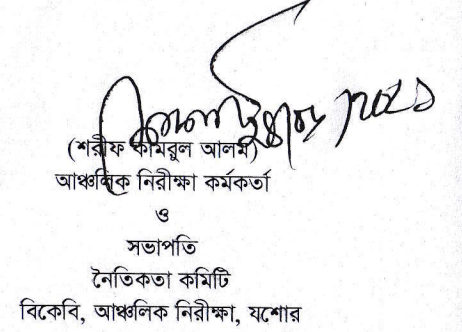 (শরীফ কামরুল আলম)
আঞ্চলিক নিরীক্ষা কর্মকর্তা
ও
সভাপতি
নৈতিকতা কমিটি
বিকেবি, আঞ্চলিক নিরীক্ষা, যশোর